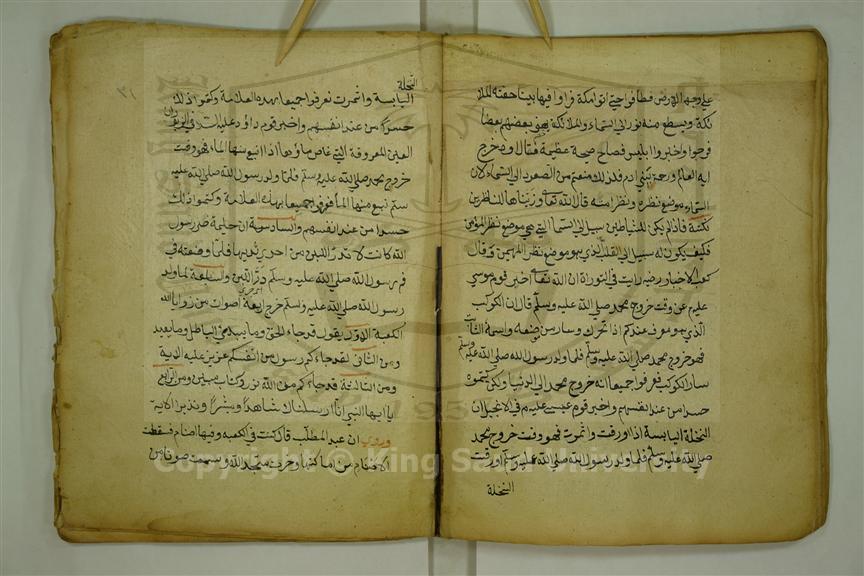 على وجه الارض فطافوا حتى اتوا مكة فراوا فيها بيتا حفته الملا
ئكة ويسطع منه نور الى السماء والملائكة يهنى بعضهم بعضا
فرجوا واخبروا ابليس فصاح صيحة عظيمة فقال وه خرج
اية العالم ورحمة بنى ادم فلذلك منعتم من الصعود الى السماء لان
السماء موضع نظره ونظر امته قال الله تعالى وزيناها للناظرين
نكتة فاذا لم يكن للشياطين سبيل الى السماء التي هي موضع نظر المؤمن
فكيف يكون له سبيل الى القلب الذي هو موضع نظر المهيمن وقال
كعب الاحبار رضه رايت في التوراة ان الله تعالى اخبر قوم موسى
عليه م عن وقت خروج محمد صلى الله عليه وسلم قال ان الكوكب
الذي هو معروف عندكم اذا تحرك وسار من موضعه واسمه الثابت
فهو خروج محمد صلى الله عليه وسلم فلما ولد رسول الله صلى الله عليه وسلم
سار الكوكب فعرفوا جميعا انه خروج محمد الى الدنيا ولكن كتموه
حسدا من عند انفسهم واخبر قوم عيسى عليه م في الانجيل ان
النخلة اليابسة اذا اورقت واثمرت فهو وقت خروج محمد
صلى الله عليه وسلم فلما ولد رسول الله صلى الله عليه وسلم اورقت
النخلة
٣١
النخلة
اليابسة واثمرت فعرفوا جميعا بهذه العلامة وكتموا ذلك
حسدا من عند انفسهم واخبر قوم داؤد عليه السلام في الزبور ان
العين المعروفة التي غاض ماؤها اذا نبع منها الماء فهو وقت
خروج محمد صلى الله عليه وسلم فلما ولد رسول الله صلى الله عليه
وسلم نبع منها الماء فعرفوا جميعا بهذه العلامة وكتموا ذلك
حسدا من عند انفسهم والسادسة ان حليمة ضر رسول
الله كانت لا تدر اللبن من احدى ثدييها فلما وضعته في
فم رسول الله صلى الله عليه وسلم در اللبن والسابعة لما ولد
رسول الله صلى الله عليه وسلم خرج اربعة اصوات من زوايا
الكعبة الاول يقول قد جاء الحق وما يبدئ الباطل وما يعيد
ومن الثانى لقد جاءكم رسول من انفسكم عزيز عليه الاية
ومن الثالثة قد جاءكم من الله نور وكتاب مبين ومن الرابع
يا ايها النبي انا ارسلناك شاهدا ومبشرا ونذيرا الاية
وروى ان عبد المطلب قال كنت في الكعبة وفيها اصنام فسقطت
الاصنام من اماكنها وخرت سجد الله وسمعت صوتا من
Copyright © King Saud University
1957